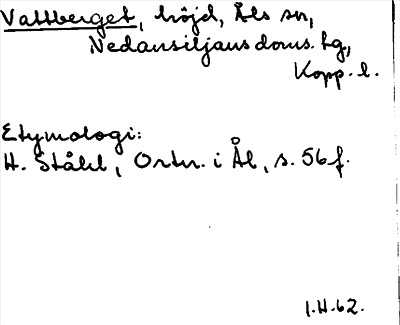 Vattberget, höjd, Åls sn,
Nedansiljans doms. tg,
Kopp. l.
Etymologi:
H. Ståhl, Ortn. i Ål, s. 56 f.
1.H.62.